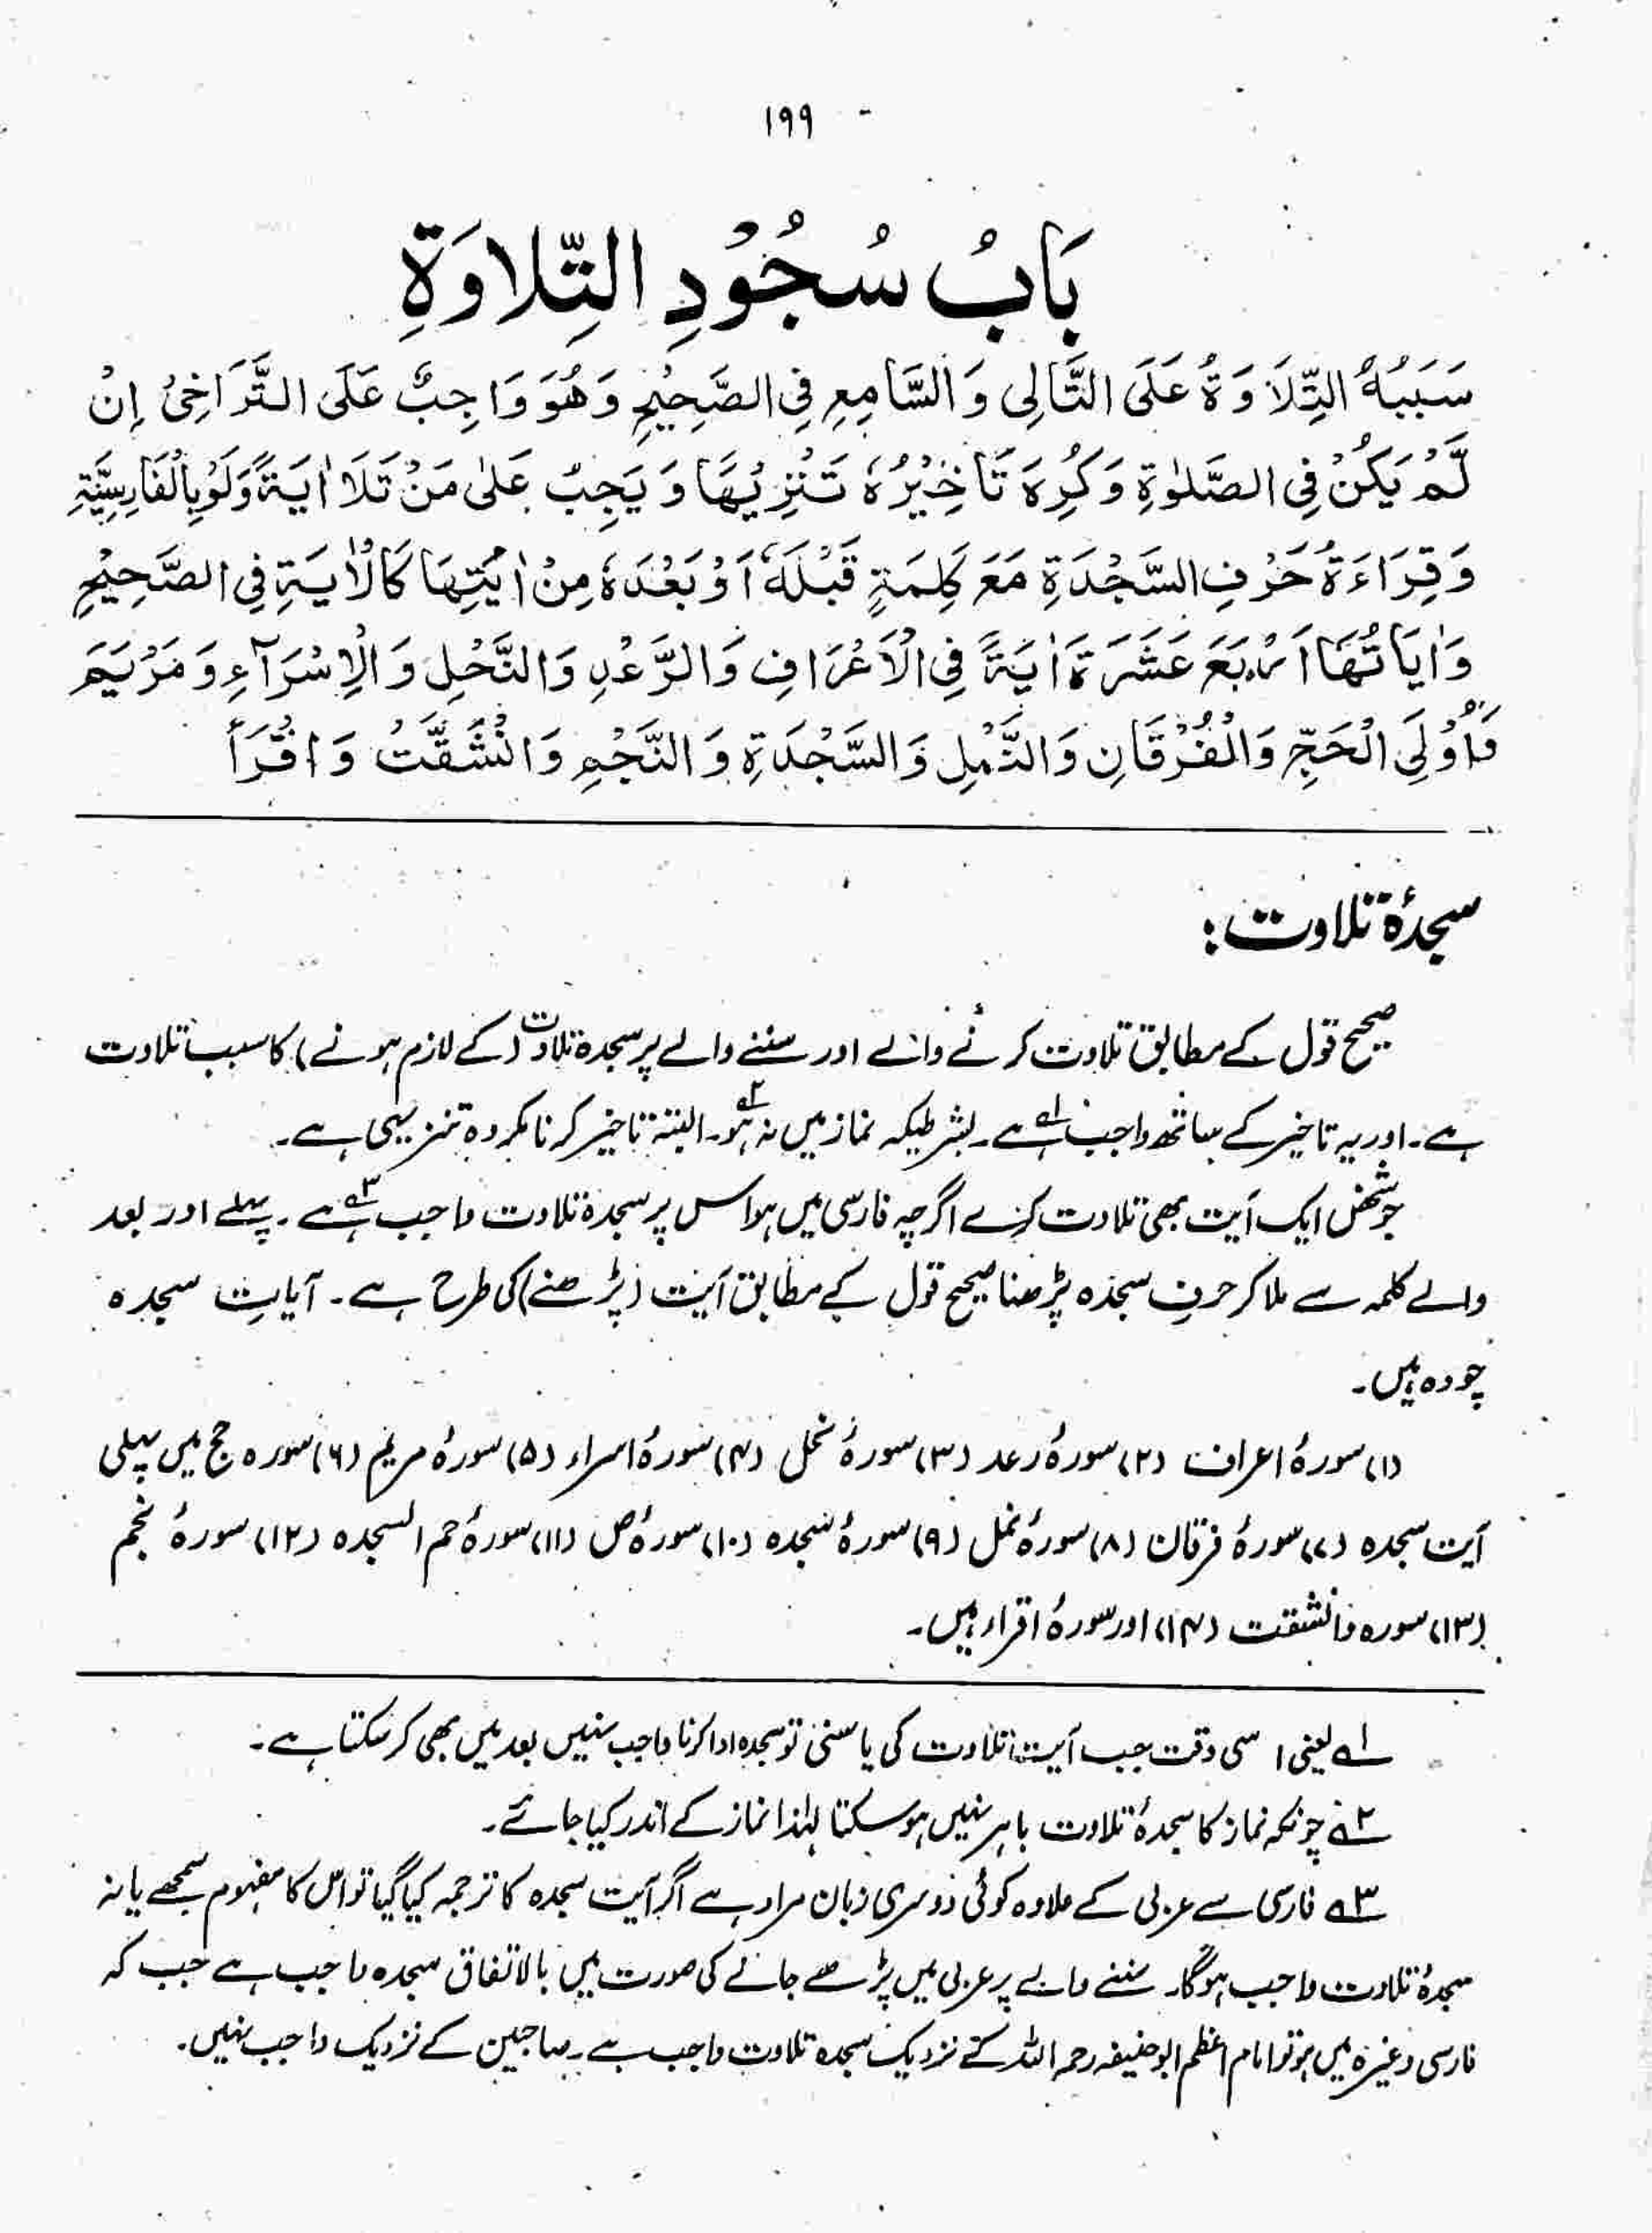 ۱۹۹
بَابُ سُجُوْدِ التِّلاوَةِ
سَبَبُهُ التِّلَاوَةُ عَلَى التَّالِى وَالسَّامِعِ فِى الصَّحِيْحِ وَهُوَ وَاجِبٌ عَلَى التَّرَاخِىْ اِنْ
لَّمْ يَكُنْ فِى الصَّلٰوةِ وَكُرِهَ تَاخِيْرُهٗ تَنْزِيْهًا وَيَجِبُ عَلٰى مَنْ تَلَا اٰيَةً وَلَوْ بِالْفَارِسِيَّةِ
وَقِرَاءَةُ حَرْفِ السَّجْدَةِ مَعَ كَلِمَةٍ قَبْلَهٗ اَوْ بَعْدَهٗ مِنْ اٰيَتِهَا كَالْاٰيَةِ فِى الصَّحِيْحِ
وَاٰيَاتُهَا اَرْبَعَ عَشَرَةَ اٰيَةً فِى الْاَعْرَافِ وَالرَّعْدِ وَالنَّحْلِ وَالْاِسْرَآءِ وَمَرْيَمَ
وَاُوْلَى الْحَجِّ وَالْفُرْقَانِ وَالنَّمْلِ وَالسَّجْدَةِ وَالنَّجْمِ وَانْشَقَّتْ وَاقْرَأْ
سجدۂ تلاوت:
صحیح قول کے مطابق تلاوت کرنے والے اور سننے والے پر سجدہ تلاوت (کے لازم ہونے) کا سبب تلاوت
ہے۔ اور یہ تاخیر کے ساتھ واجب۱؎ ہے۔ بشرطیکہ نماز میں نہ ہو۲؎۔ البتہ تاخیر کرنا مکروہ تنزیہی ہے۔
جو شخص ایک آیت بھی تلاوت کرے اگرچہ فارسی میں ہو اس پر سجدۂ تلاوت واجب۳؎ ہے۔ پہلے اور بعد
والے کلمہ سے ملا کر حرفِ سجدہ پڑھنا صحیح قول کے مطابق آیت (پڑھنے) کی طرح ہے۔ آیاتِ سجدہ
چودہ ہیں۔
(۱) سورۂ اعراف (۲) سورۂ رعد (۳) سورۂ نحل (۴) سورۂ اسراء (۵) سورۂ مریم (۶) سورہ حج میں پہلی
آیت سجدہ (۷) سورۂ فرقان (۸) سورۂ نمل (۹) سورۂ سجدہ (۱۰) سورۂ ص (۱۱) سورۂ حم السجدہ (۱۲) سورۂ نجم
(۱۳) سورہ وانشقت (۱۴) اور سورۂ اقراء ہیں۔
۱؎ یعنی اسی وقت جب آیت تلاوت کی یا سنی تو سجدہ ادا کرنا واجب نہیں بعد میں بھی کر سکتا ہے۔
۲؎ چونکہ نماز کا سجدۂ تلاوت باہر نہیں ہو سکتا لہٰذا نماز کے اندر کیا جائے۔
۳؎ فارسی سے عربی کے علاوہ کوئی دوسری زبان مراد ہے اگر آیت سجدہ کا ترجمہ کیا گیا تو اس کا مفہوم سمجھے یا نہ
سجدۂ تلاوت واجب ہوگا۔ سننے والے پر عربی میں پڑھے جانے کی صورت میں بالاتفاق سجدہ واجب ہے جب کہ
فارسی وغیرہ میں ہو تو امام اعظم ابو حنیفہ رحمہ اللہ کے نزدیک سجدہ تلاوت واجب ہے۔ صاحبین کے نزدیک واجب نہیں۔